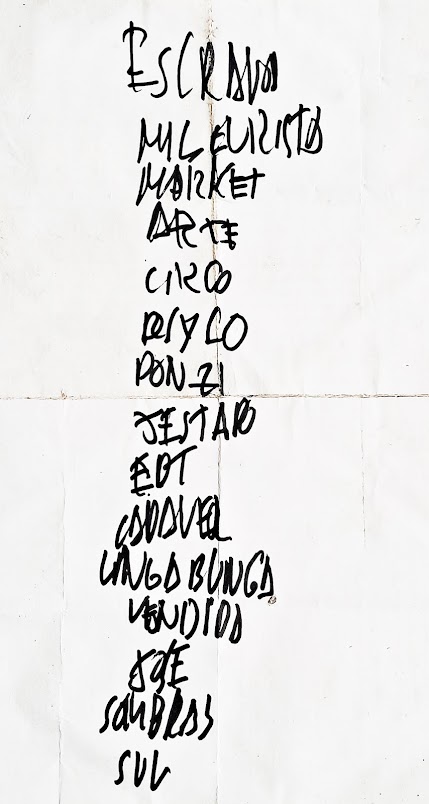 ESCRAVO
MILEURISTA
MARKET
ARTE
CIRCO
PONZI
TESTADO
EDT
CADAVER
UNGABUNGA
VENDIDA
SOMBRAS
SUL